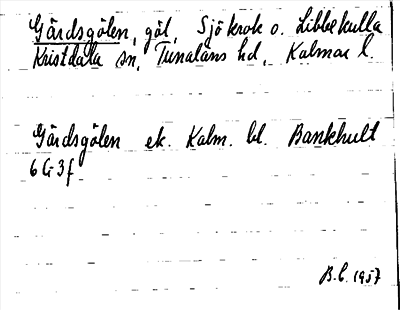 Gårdsgölen, göl, Sjökrok o. Libbekulla
Kristdala sn, Tunaläns hd, Kalmar l.
Gårdsgölen ek. Kalm. bl. Bankhult
6G3f
B.L. 1957